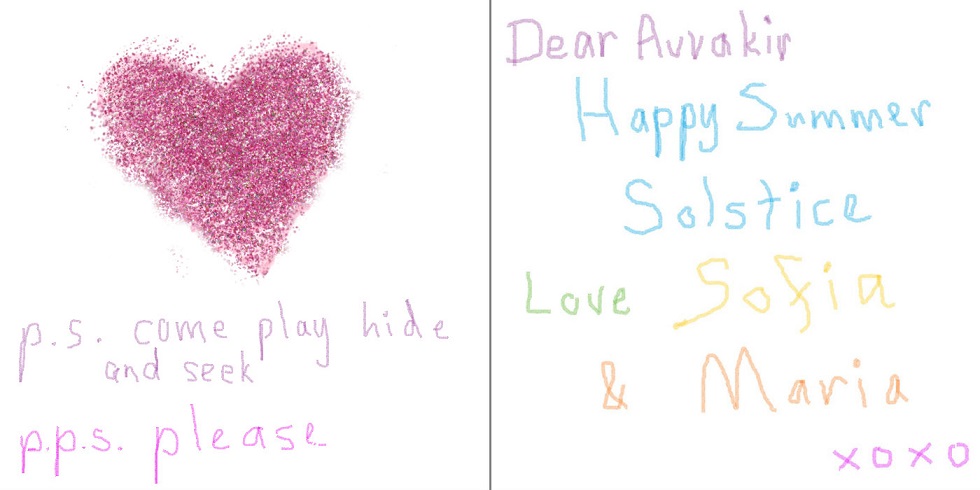 p.s. come play hide
and seek
p.p.s. please
Dear Avvakir
Happy Summer
Solstice
Love Sofia
& Maria
xoxo